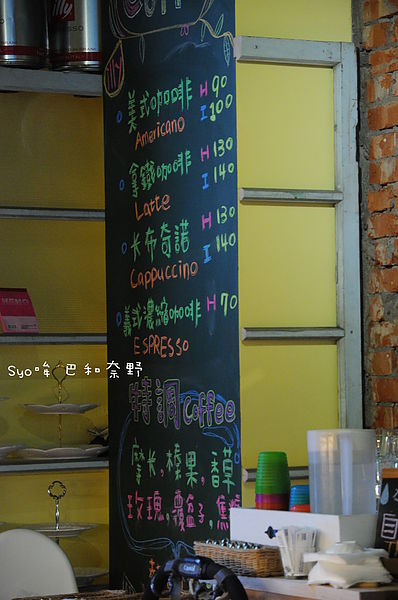 illy
illy
美式咖啡 H 90
Americano I 100
拿鐵咖啡 H 130
Latte I 140
卡布奇諾 H 130
Cappuccino I 140
義式濃縮咖啡 H 70
ESPRESSO
Syo哞 巴和奈野
特調coffee
摩卡,榛果,香草
玫瑰,覆盆子,焦糖